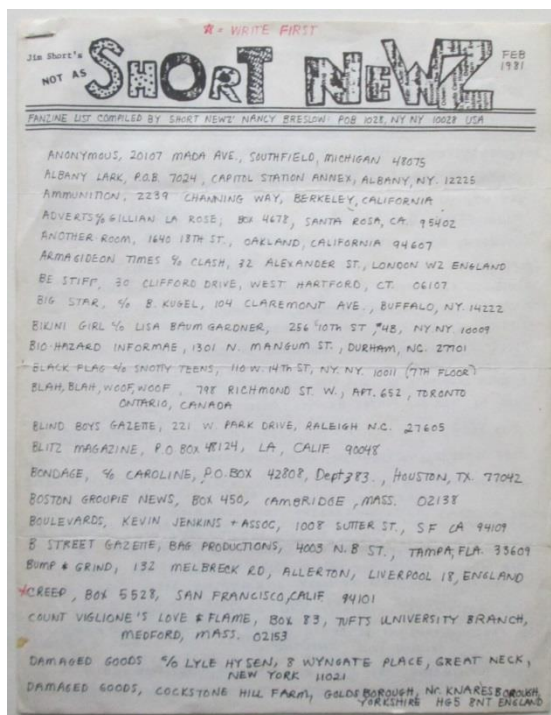 * = WRITE FIRST
Jim Short's
NOT AS
SHORT NEWZ
FEB
1981
FANZINE LIST COMPILED BY SHORT NEWZ' NANCY BRESLOW: POB 1028, NY NY 10028 USA
ANONYMOUS, 20107 MADA AVE., SOUTHFIELD, MICHIGAN 48075
ALBANY LARK, P.O.B. 7024, CAPITOL STATION ANNEX, ALBANY, NY. 12225
AMMUNITION, 2239 CHANNING WAY, BERKELEY, CALIFORNIA
ADVERTS % GILLIAN LA ROSE, BOX 4678, SANTA ROSA, CA. 95402
ANOTHER ROOM, 1640 18TH ST., OAKLAND, CALIFORNIA 94607
ARMAGIDEON TIMES % CLASH, 32 ALEXANDER ST., LONDON W2 ENGLAND
BE STIFF, 30 CLIFFORD DRIVE, WEST HARTFORD, CT. 06107
BIG STAR, % B. KUGEL, 104 CLAREMONT AVE., BUFFALO, NY. 14222
BIKINI GIRL % LISA BAUMGARDNER, 256 E 10TH ST, #4B, NY NY. 10009
BIO-HAZARD INFORMAE, 1301 N. MANGUM ST., DURHAM, NC. 27701
BLACK FLAG % SNOTTY TEENS, 110 W. 14TH ST, NY. NY. 10011 (7TH FLOOR)
BLAH, BLAH, WOOF, WOOF, 798 RICHMOND ST. W., APT. 652, TORONTO
ONTARIO, CANADA
BLIND BOYS GAZETTE, 221 W. PARK DRIVE, RALEIGH N.C. 27605
BLITZ MAGAZINE, P.O BOX 48124, LA, CALIF 90048
BONDAGE, % CAROLINE, P.O. BOX 42808, Dept 383., HOUSTON, TX. 77042
BOSTON GROUPIE NEWS, BOX 450, CAMBRIDGE, MASS. 02138
BOULEVARDS, KEVIN JENKINS + ASSOC, 1008 SUTTER ST., SF CA 94109
B STREET GAZETTE, BAG PRODUCTIONS, 4003 N. B ST., TAMPA, FLA. 33609
BUMP & GRIND, 132 MELBRECK RD, ALLERTON, LIVERPOOL 18, ENGLAND
*CREEP, BOX 5528, SAN FRANCISCO, CALIF 94101
COUNT VIGLIONE'S LOVE & FLAME, BOX 83, TUFTS UNIVERSITY BRANCH,
MEDFORD, MASS. 02153
DAMAGED GOODS % LYLE HYSEN, 8 WYNGATE PLACE, GREAT NECK,
NEW YORK 11021
DAMAGED GOODS, COCKSTONE HILL FARM, GOLDSBOROUGH, Nr. KNARESBOROUGH,
YORKSHIRE HG5 8NT ENGLAND